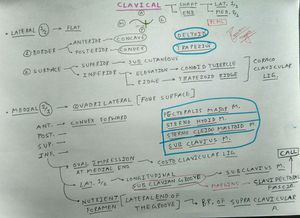 CLAVICAL
SHAFT LAT. 2/3
END MED. 1/3
• LATERAL 1/3 → FLAT
② BORDER ANTERIOR → CONCAVE DELTOID
POSTERIOR → CONVEX TRAPEZIUS
② SURFACE → SUPERIOR → SUB CUTANEOUS
INFERIOR ELEVATION → CONOID TUBERCLE
RIDGE → TRAPEZOID RIDGE
CORACO CLAVICULAR LIG.
MEDIAL 2/3 → QUADRILATERAL [FOUR SURFACE]
ANT. → CONVEX FORWARD
POST.
SUP.
INF.
PECTORALIS MAJOR M.
STERNO HYOID M.
STERNO CLEIDO MASTOID M.
SUB CLAVIUS M.
OVAL IMPRESSION AT MEDIAL END → COSTO CLAVICULAR LIG.
CALL
LAT. 1/2 → LONGITUDINAL SUB CLAVIAN GROOVE
SUB CLAVIUS M.
MARGINS → CLAVI PECTORAL FASCIA
NUTRIENT FORAMEN → LATERAL END OF THE GROOVE → BR. OF SUPRA CLAVICULAR A